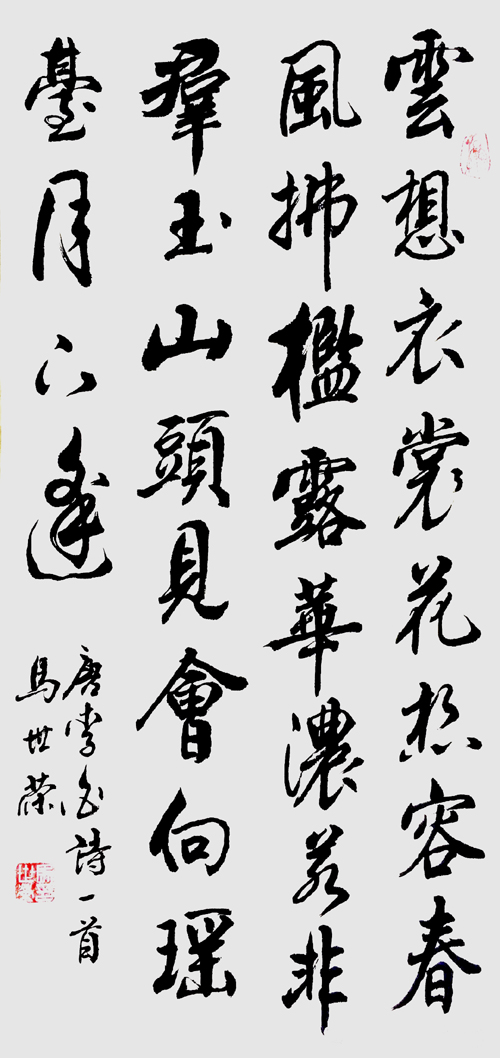 雲想衣裳花想容春
風拂檻露華濃若非
羣玉山頭見會向瑶
臺月下逢
唐李白詩一首
馬世榮